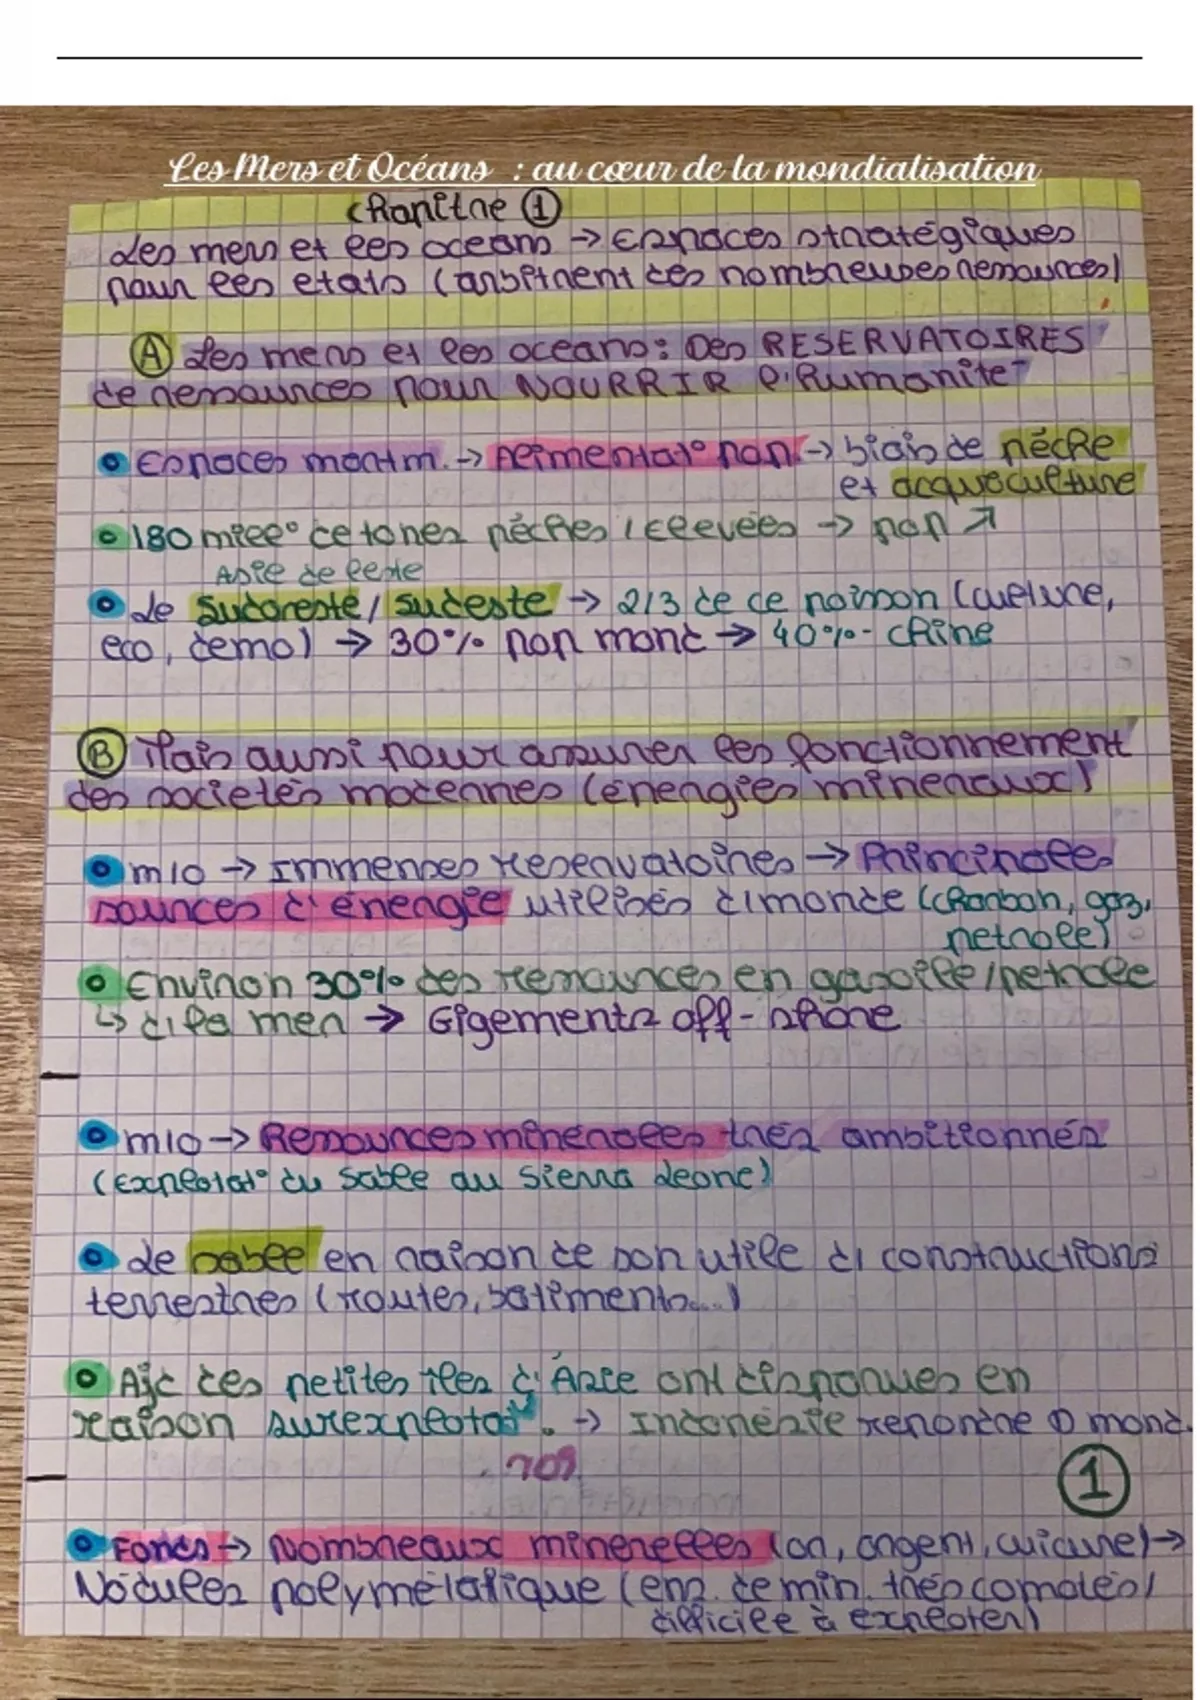 Les Mers et Océans : au cœur de la mondialisation
Chapitre ①
Les mers et les oceans → Espaces stratégiques
pour les etats (arbitrent des nombreuses ressources)
Ⓐ Les mers et les oceans : Des RESERVATOIRES
de ressources pour NOURRIR l'humanité
• Espaces maritm. → alimentat° pop. → biais de pêche
et acquaculture
• 180 mill° de tones pêches / élevées → pop ↗
Asie de l'este
• Le Sudoreste / sudeste → 2/3 de ce poisson (culture,
eco, demo) → 30% pop mond → 40% - Chine
Ⓑ Mais aussi pour assurer les fonctionnement
des societés modernes (énergies minéraux)
• m/o → Immenses reservatoires → Principales
sources d'énergie utilisés d/monde (charbon, gaz,
petrole)
• Environ 30% des ressources en gasoille/petrole
↳ d/la mer → Gigements off-shore
• m/o → Ressources minerales très ambitionnés
(exploitat° du sable au Sierra Leone)
• Le sable en raison de son utile d/ constructions
terrestres (routes, batiments...)
• Ajd des petites îles d'Asie ont disparues en
raison surexploitat°. → Indonésie 1er mond.
sol
①
• Fonds → Nombreaux minerelles (or, argent, cuivre) →
Nodules polymétallique (ens. de min. très complés/
difficile à exploiter)